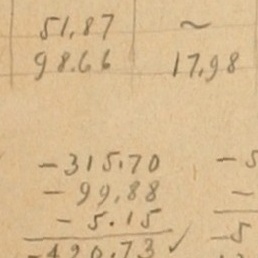 51.87 ~
98.66 17.98
-315.70 - 5
- 99.88 -
- 5.15
-420.73 ✓ -5